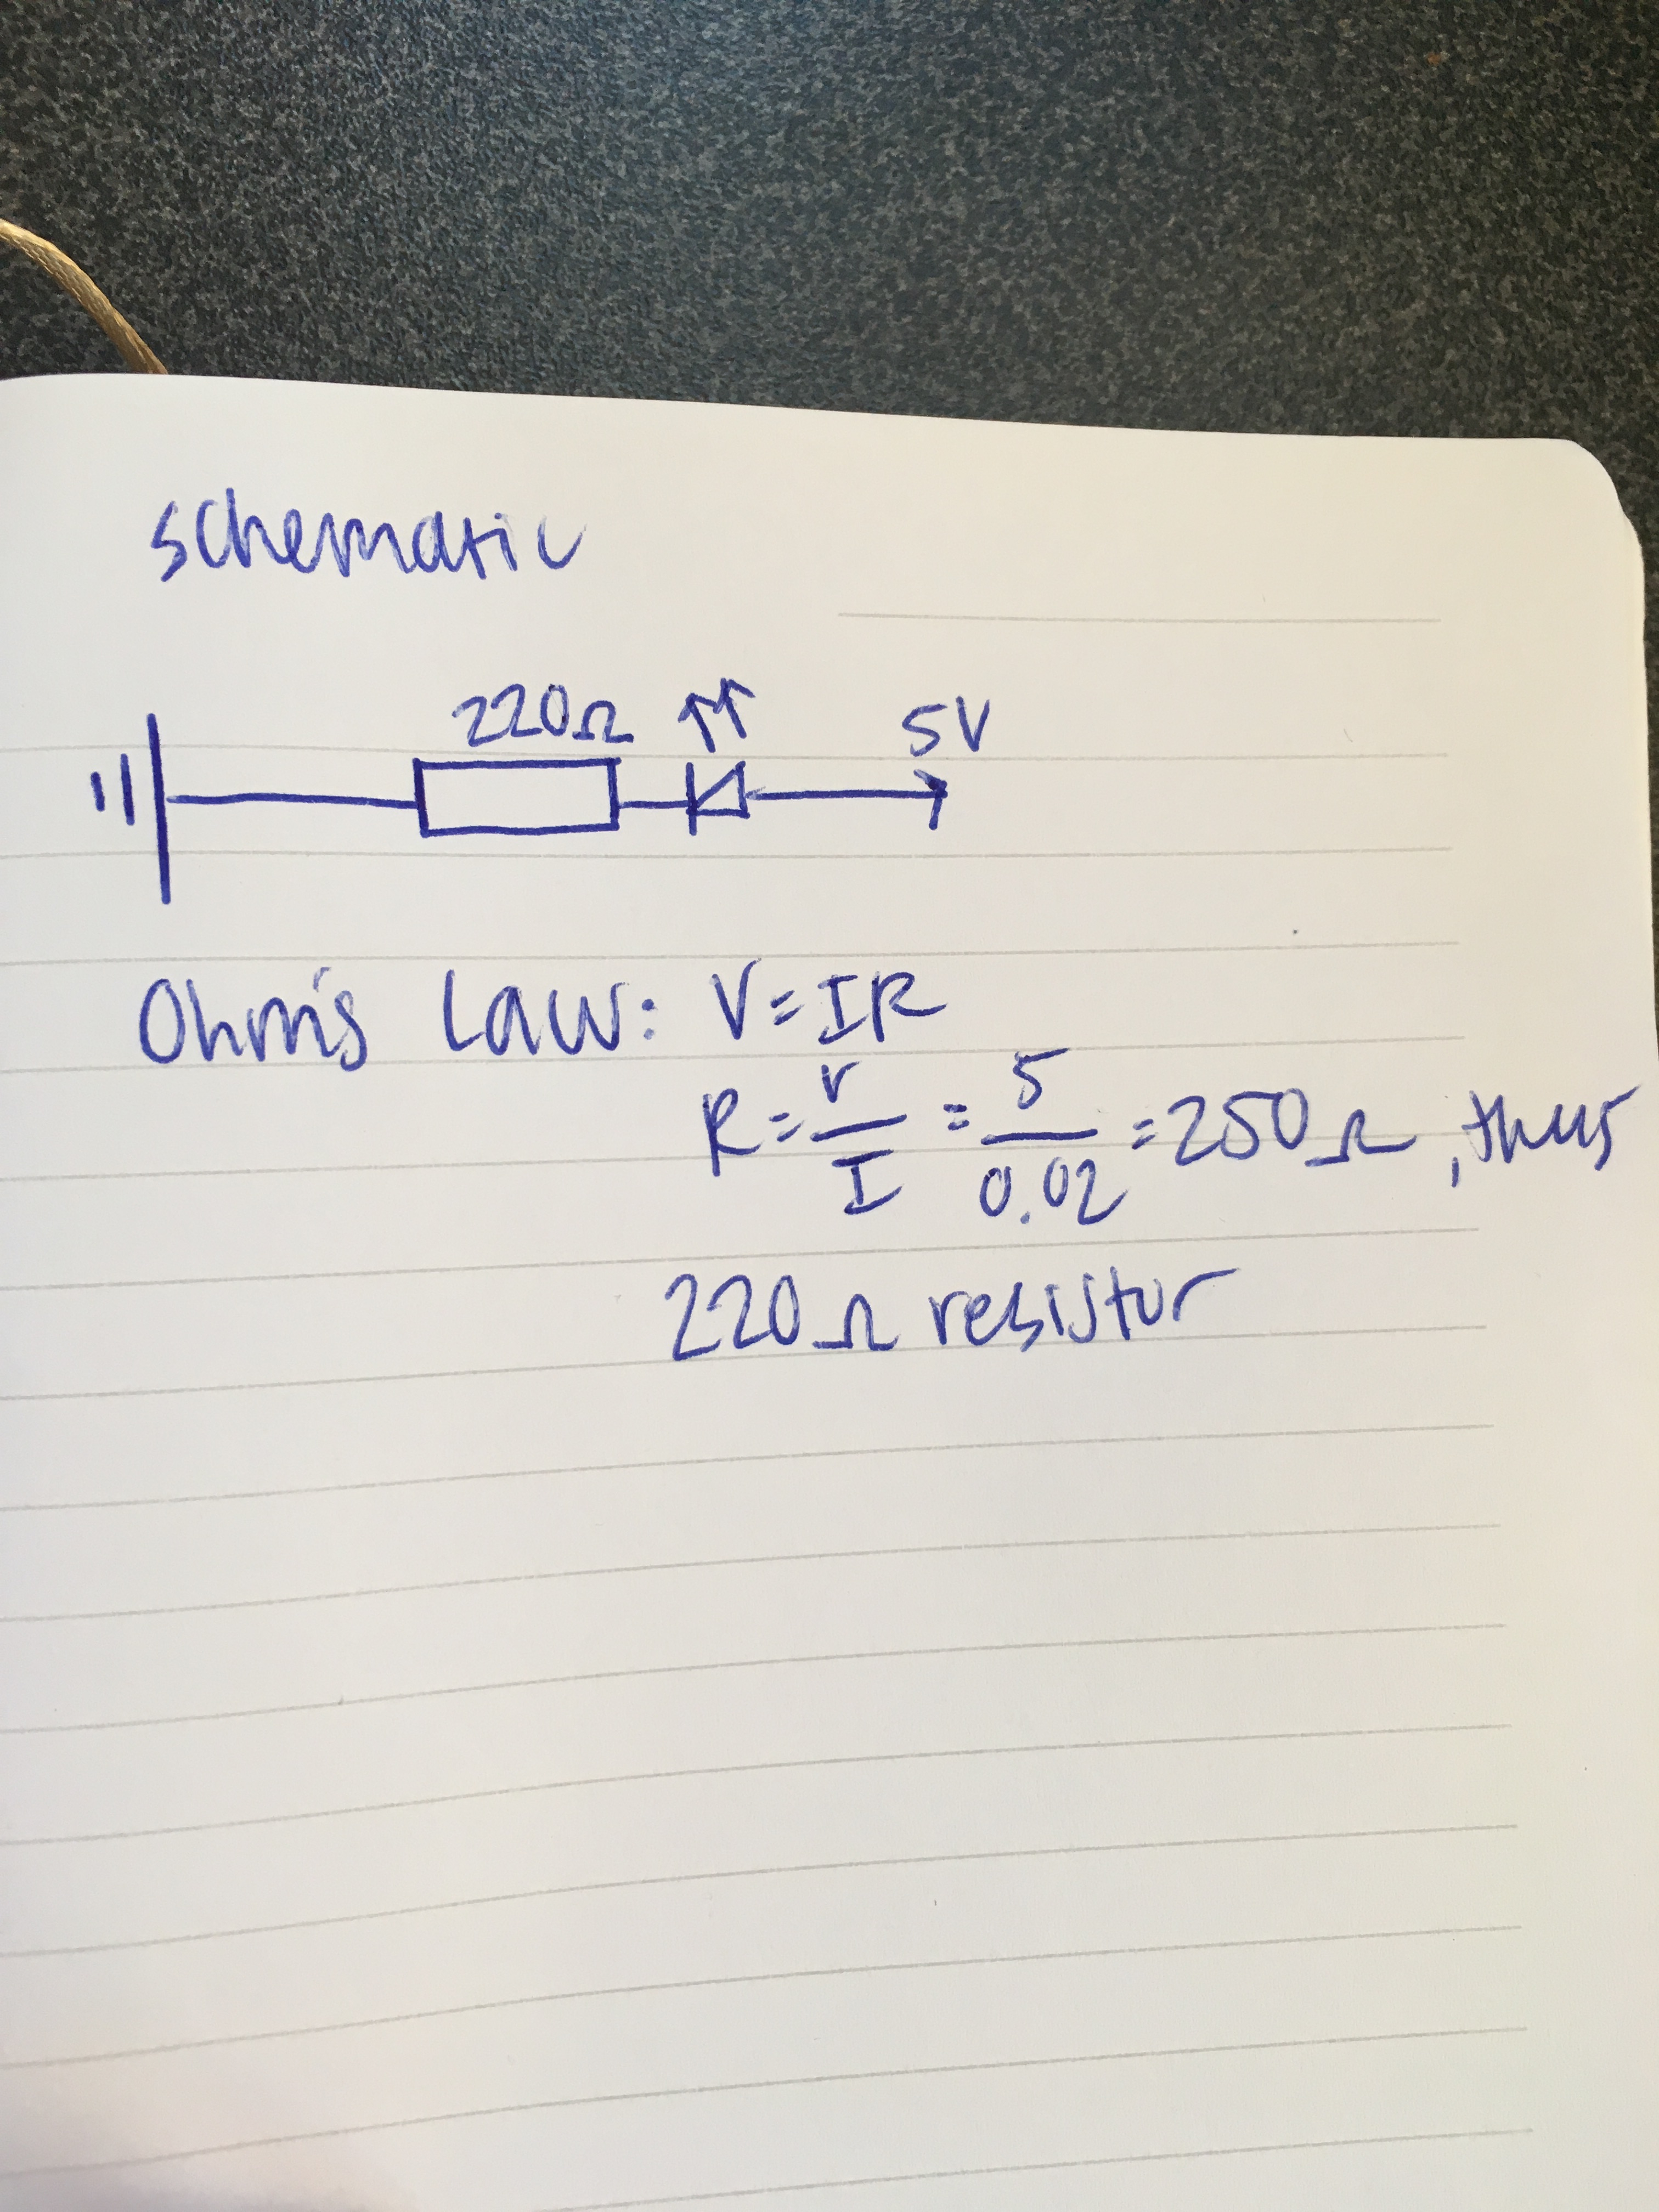 schematic
220Ω 5V
Ohm's Law: V=IR
R=V/I=5/0.02=250Ω, thus
220Ω resistor